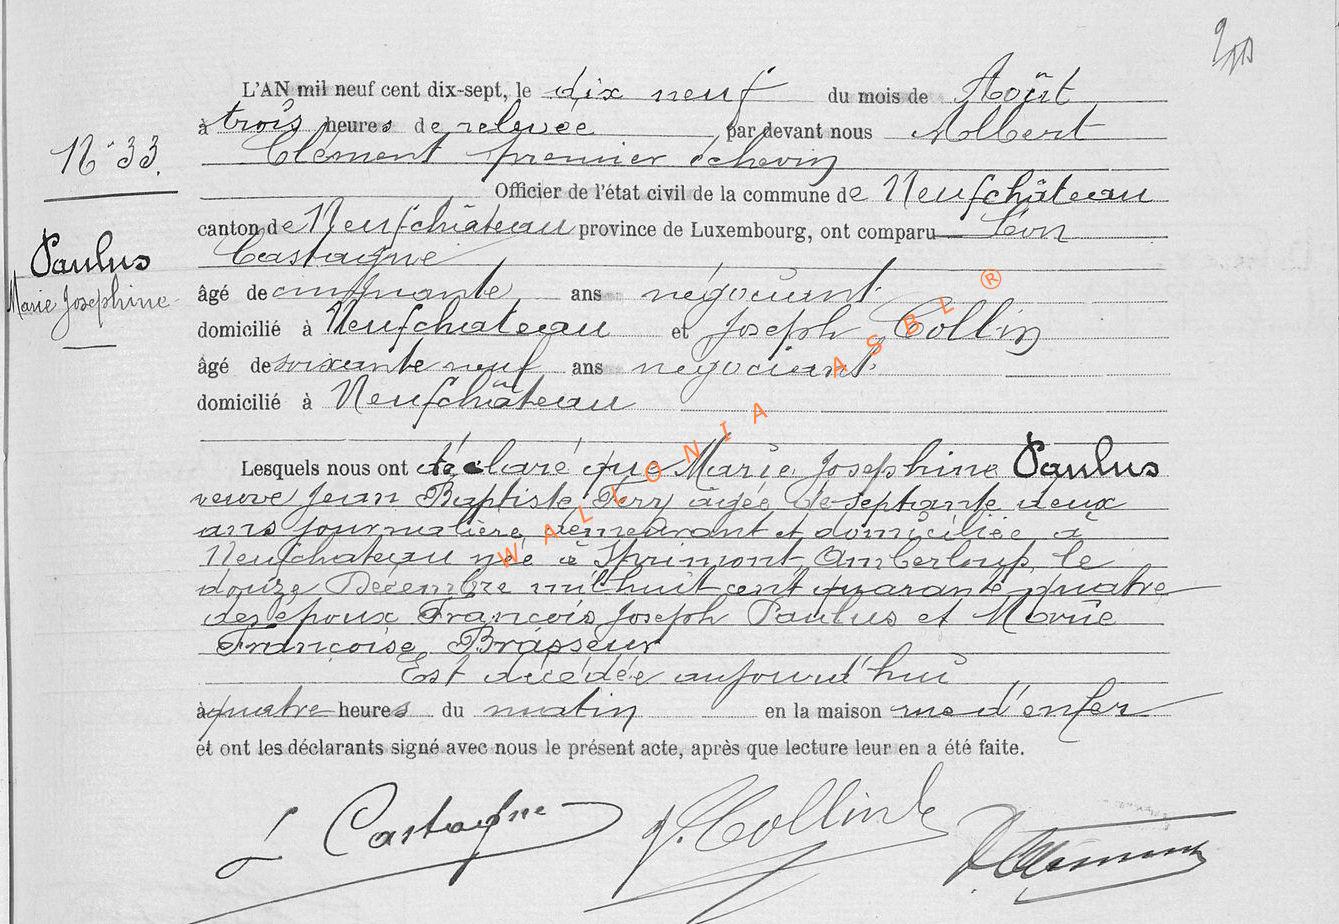 L'AN mil neuf cent dix-sept, le dix neuf du mois de Août
à trois heures de relevée par devant nous Albert
Clément premier échevin
N° 33.
Officier de l'état civil de la commune de Neufchâteau
canton de Neufchâteau province de Luxembourg, ont comparu Léon
Castaigne
Paulus
Marie Josephine
âgé de cinquante ans négociant
domicilié à Neufchateau et Joseph Collin
âgé de soixante neuf ans négociant
domicilié à Neufchâteau
WALLONIA ASBL ®
Lesquels nous ont déclaré que Marie Josephine Paulus
veuve Jean Baptiste âgée de septante deux
ans journalière demeurant et domiciliée à
Neufchateau née à Sprimont Amberloup, le
douze Décembre mil huit cent quarante quatre
des époux François Joseph Paulus et Marie
Françoise Brasseur
Est décédée aujourd'hui
à quatre heures du matin en la maison rue d'enfer
et ont les déclarants signé avec nous le présent acte, après que lecture leur en a été faite.
L Castaigne J. Collin A Clément